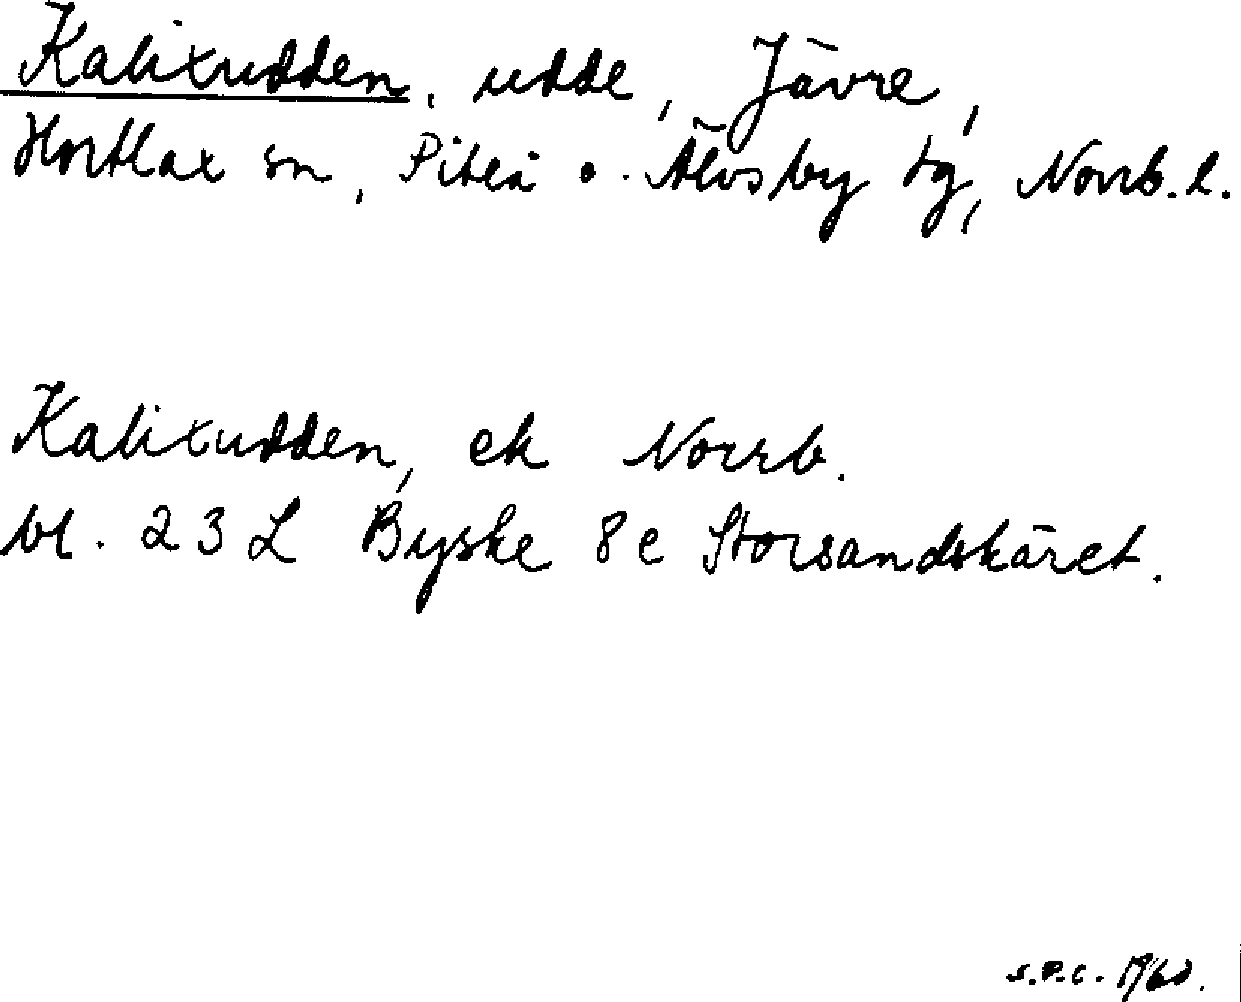 Kalixudden, udde, Jävre,
Hortlax sn, Piteå o. Älvsby tg, Norrb. l.
Kalixudden, ek Norrb.
bl. 23 L Byske 8e Storsandskäret.